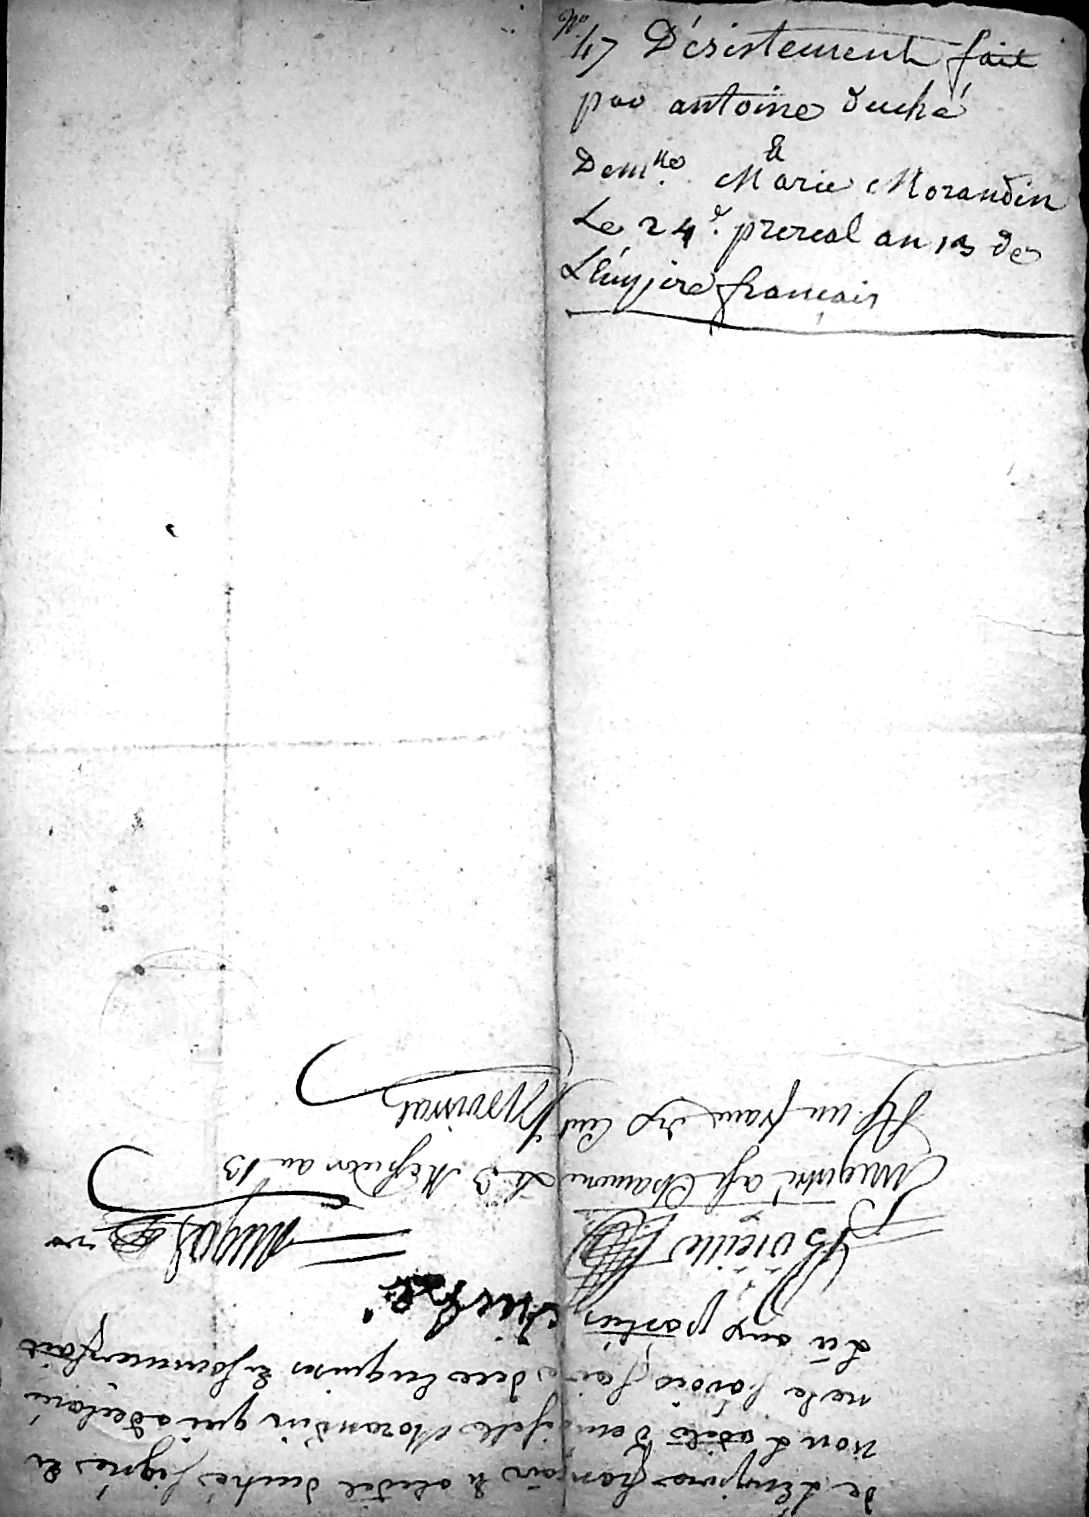 No
47 Désistement fait
par antoine duché
Et
Demlle. Marie Morandin
Le 24e. prereal an 13 de
L'Empire français
de L'empire français & aledit duché signés et
non Ladite demoiselle Morandin qui a declaré
ne le savoir faire de ce enquises & sommer fait
Lu aux parties duché
Vieille
Enregistré a st Chamond le 3 Messidor an 13
Rç un franc dix cent